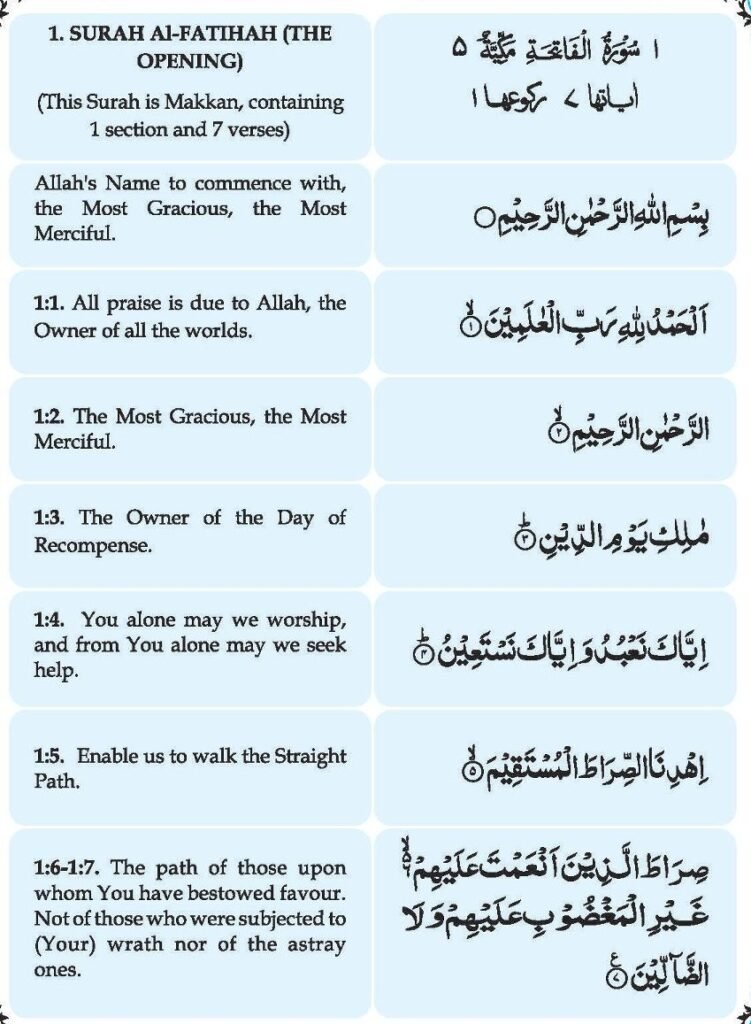 1. SURAH Al-FATIHAH (THE
OPENING)
(This Surah is Makkan, containing
1 section and 7 verses)
۱ سُوْرَةُ الْفَاتِحَةِ مَكِّيَّةٌ ۵
اٰیاتها ۷ رکوعها ۱
Allah's Name to commence with,
the Most Gracious, the Most
Merciful.
بِسْمِ اللّٰهِ الرَّحْمٰنِ الرَّحِیْمِ○
1:1. All praise is due to Allah, the
Owner of all the worlds.
اَلْحَمْدُ لِلّٰهِ رَبِّ الْعٰلَمِیْنَۙ۝۱
1:2. The Most Gracious, the Most
Merciful.
الرَّحْمٰنِ الرَّحِیْمِۙ۝۲
1:3. The Owner of the Day of
Recompense.
مٰلِكِ یَوْمِ الدِّیْنِؕ۝۳
1:4. You alone may we worship,
and from You alone may we seek
help.
اِیَّاكَ نَعْبُدُ وَ اِیَّاكَ نَسْتَعِیْنُؕ۝۴
1:5. Enable us to walk the Straight
Path.
اِهْدِنَا الصِّرَاطَ الْمُسْتَقِیْمَۙ۝۵
1:6-1:7. The path of those upon
whom You have bestowed favour.
Not of those who were subjected to
(Your) wrath nor of the astray
ones.
صِرَاطَ الَّذِیْنَ اَنْعَمْتَ عَلَیْهِمْ ۙ۬۝۶
غَیْرِ الْمَغْضُوْبِ عَلَیْهِمْ وَ لَا
الضَّآلِّیْنَ۠۝۷